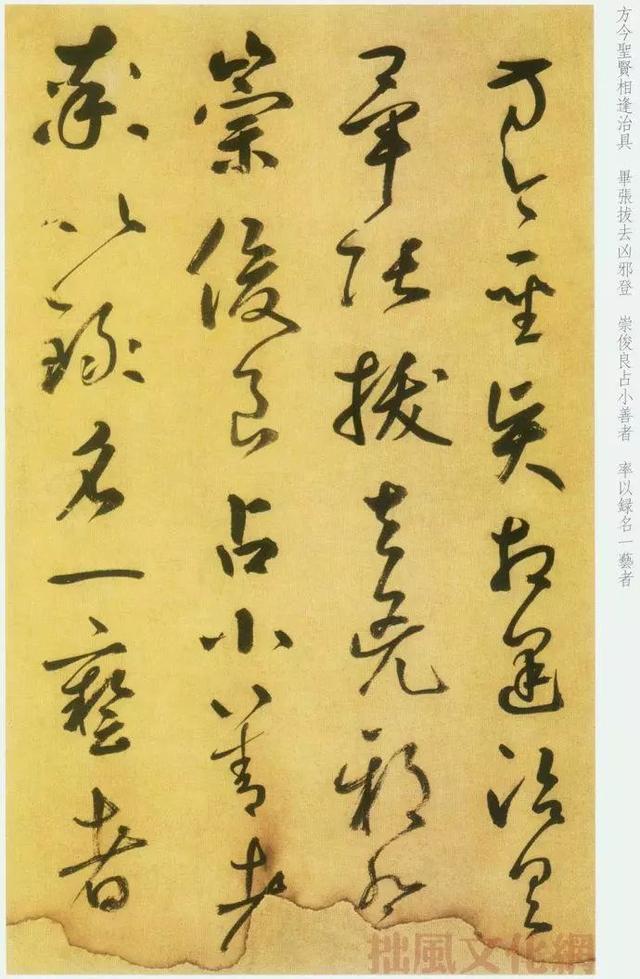 方今聖賢相逢治具　畢張拔去凶邪登　崇俊良占小善者　率以録名一藝者
方今聖賢相逢治具
畢張拔去兇邪登
崇俊良占小善者
率以録名一藝者
拙風文化網